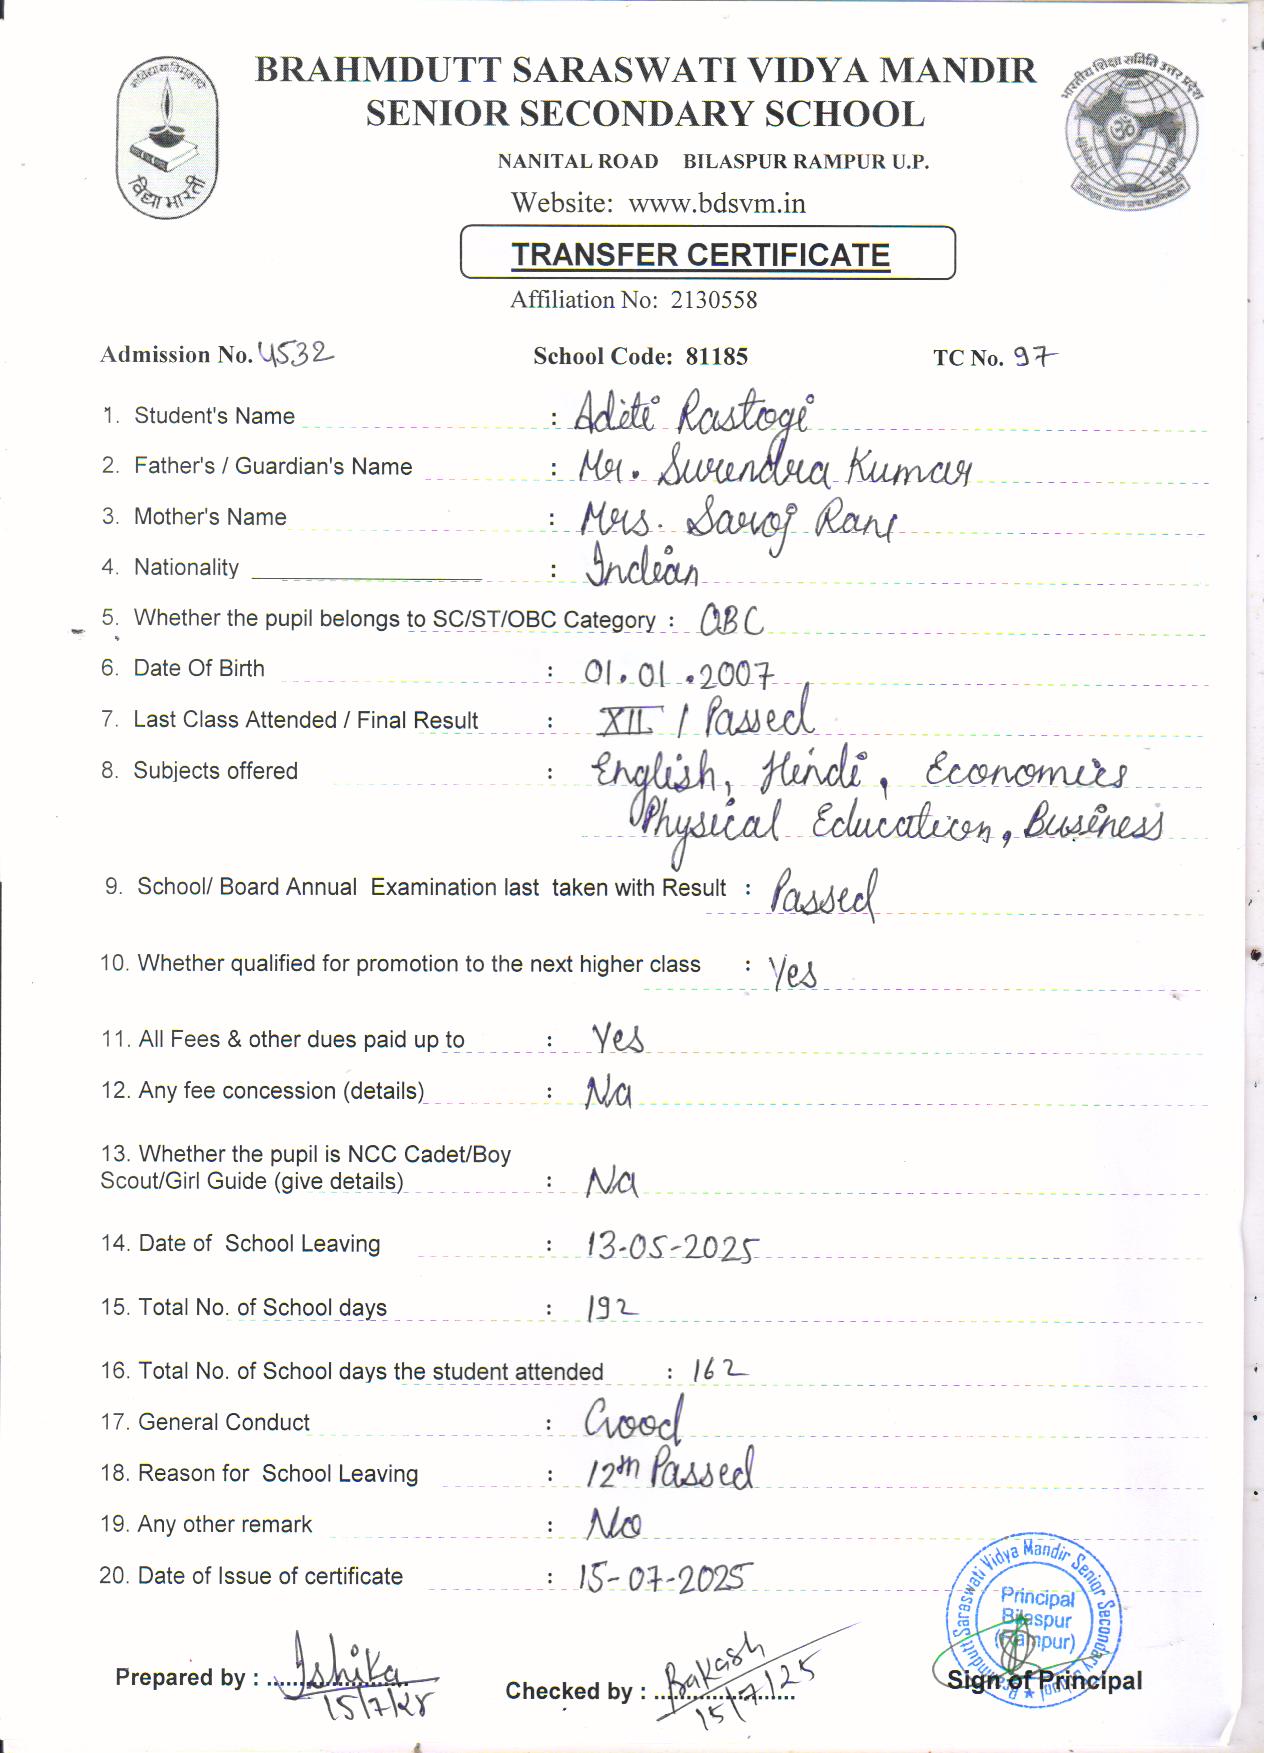 BRAHMDUTT SARASWATI VIDYA MANDIR
SENIOR SECONDARY SCHOOL
NANITAL ROAD BILASPUR RAMPUR U.P.
Website: www.bdsvm.in
विद्या भारती
भारतीय शिक्षा समिति उत्तर प्रदेश
TRANSFER CERTIFICATE
Affiliation No: 2130558
Admission No. 4532 School Code: 81185 TC No. 97
1. Student's Name : Aditi Rastogi
2. Father's / Guardian's Name : Mr. Surendra Kumar
3. Mother's Name : Mrs. Saroj Rani
4. Nationality : Indian
5. Whether the pupil belongs to SC/ST/OBC Category : OBC
6. Date Of Birth : 01.01.2007
7. Last Class Attended / Final Result : XII / Passed
8. Subjects offered : English, Hindi, Economics
Physical Education, Business
9. School/ Board Annual Examination last taken with Result : Passed
10. Whether qualified for promotion to the next higher class : Yes
11. All Fees & other dues paid up to : Yes
12. Any fee concession (details) : Na
13. Whether the pupil is NCC Cadet/Boy
Scout/Girl Guide (give details) : Na
14. Date of School Leaving : 13-05-2025
15. Total No. of School days : 192
16. Total No. of School days the student attended : 162
17. General Conduct : Good
18. Reason for School Leaving : 12th Passed
19. Any other remark : No
20. Date of Issue of certificate : 15-07-2025
Brahmdutt Saraswati Vidya Mandir Senior Secondary School
Principal
Bilaspur
(Rampur)
Prepared by : Ishika Checked by : Sign of Principal
15/7/25 15/7/25